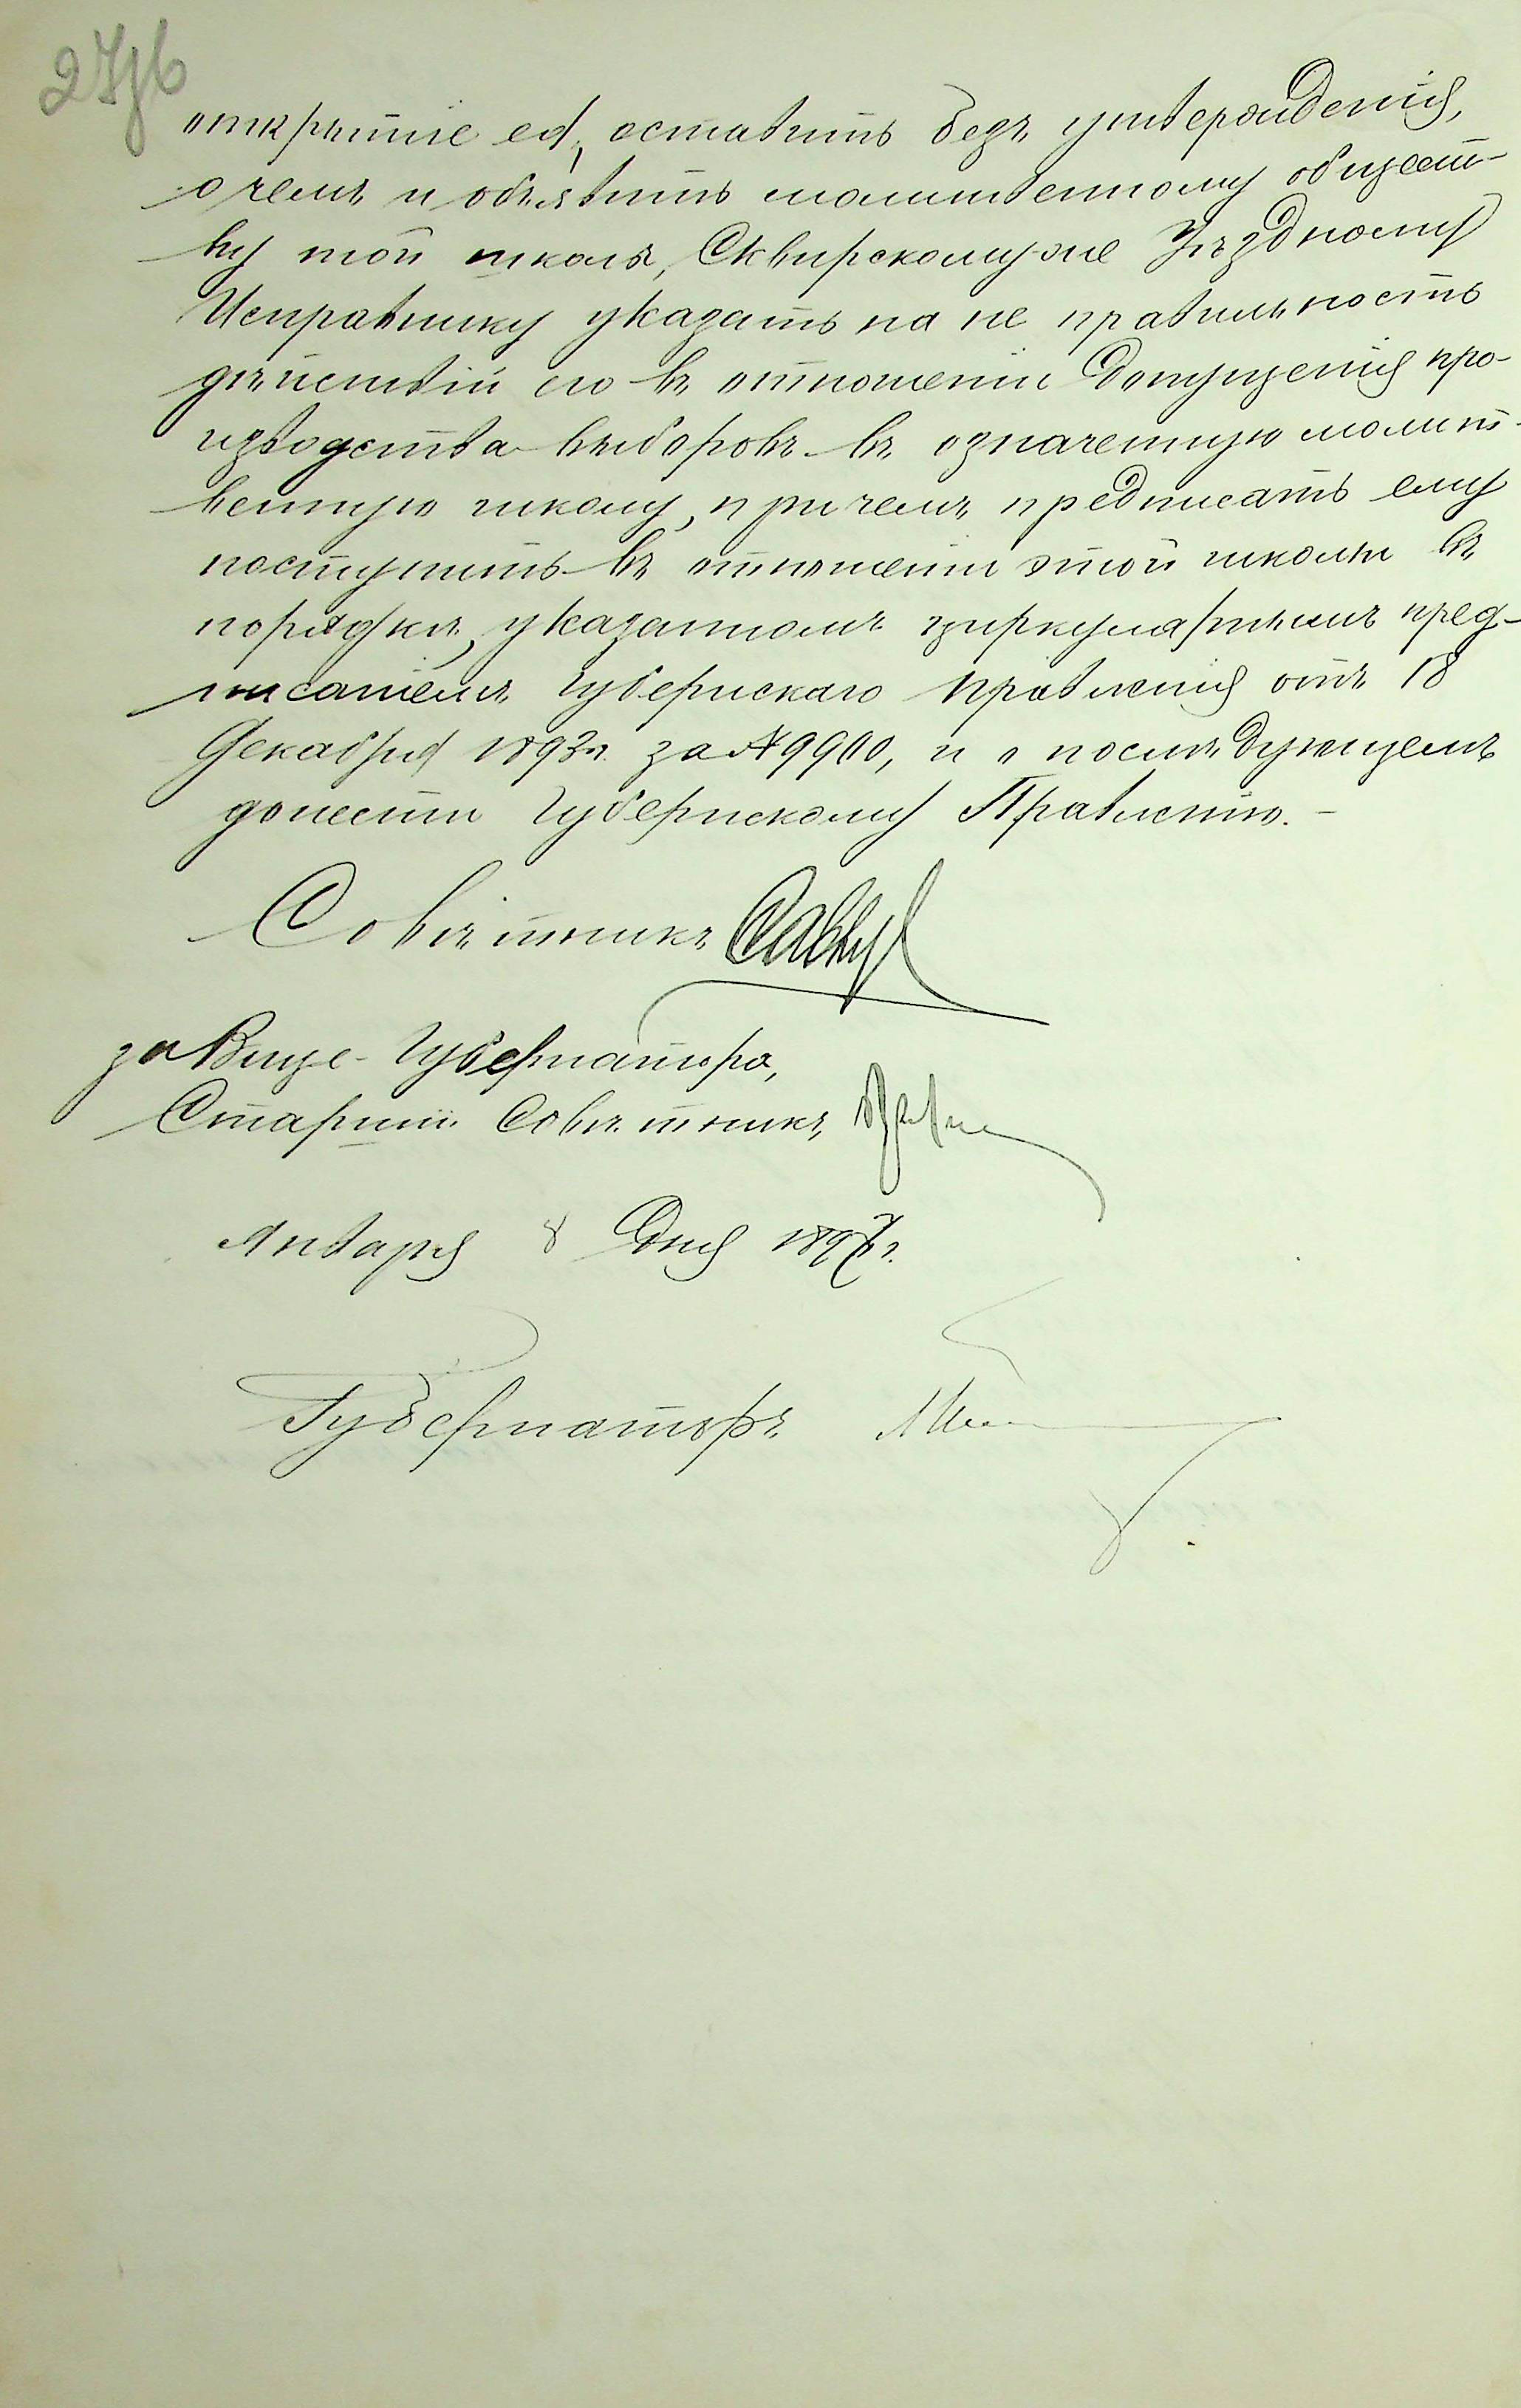 открытіе ея, оставить безъ утвержденія,
о чемъ и объявить молитвенному общест-
ву той школы, Сквирскому-же Уѣздному
Исправнику указать на не правильность
дѣйствій его въ отношеніи допущенія про-
изводства выборовъ въ означенную молит-
венную школу, при чемъ предписать ему
поступить въ отношеніи этой школы въ
порядкѣ, указанномъ циркулярнымъ пред-
писаніемъ Губернскаго Правленія отъ 18
Декабря 1893 г. за № 9900, и о послѣдующемъ
донести Губернскому Правленію. -
Совѣтникъ
за Вице-Губернатора,
Старшій Совѣтникъ
Января 8 дня 1897 г.
Губернаторъ